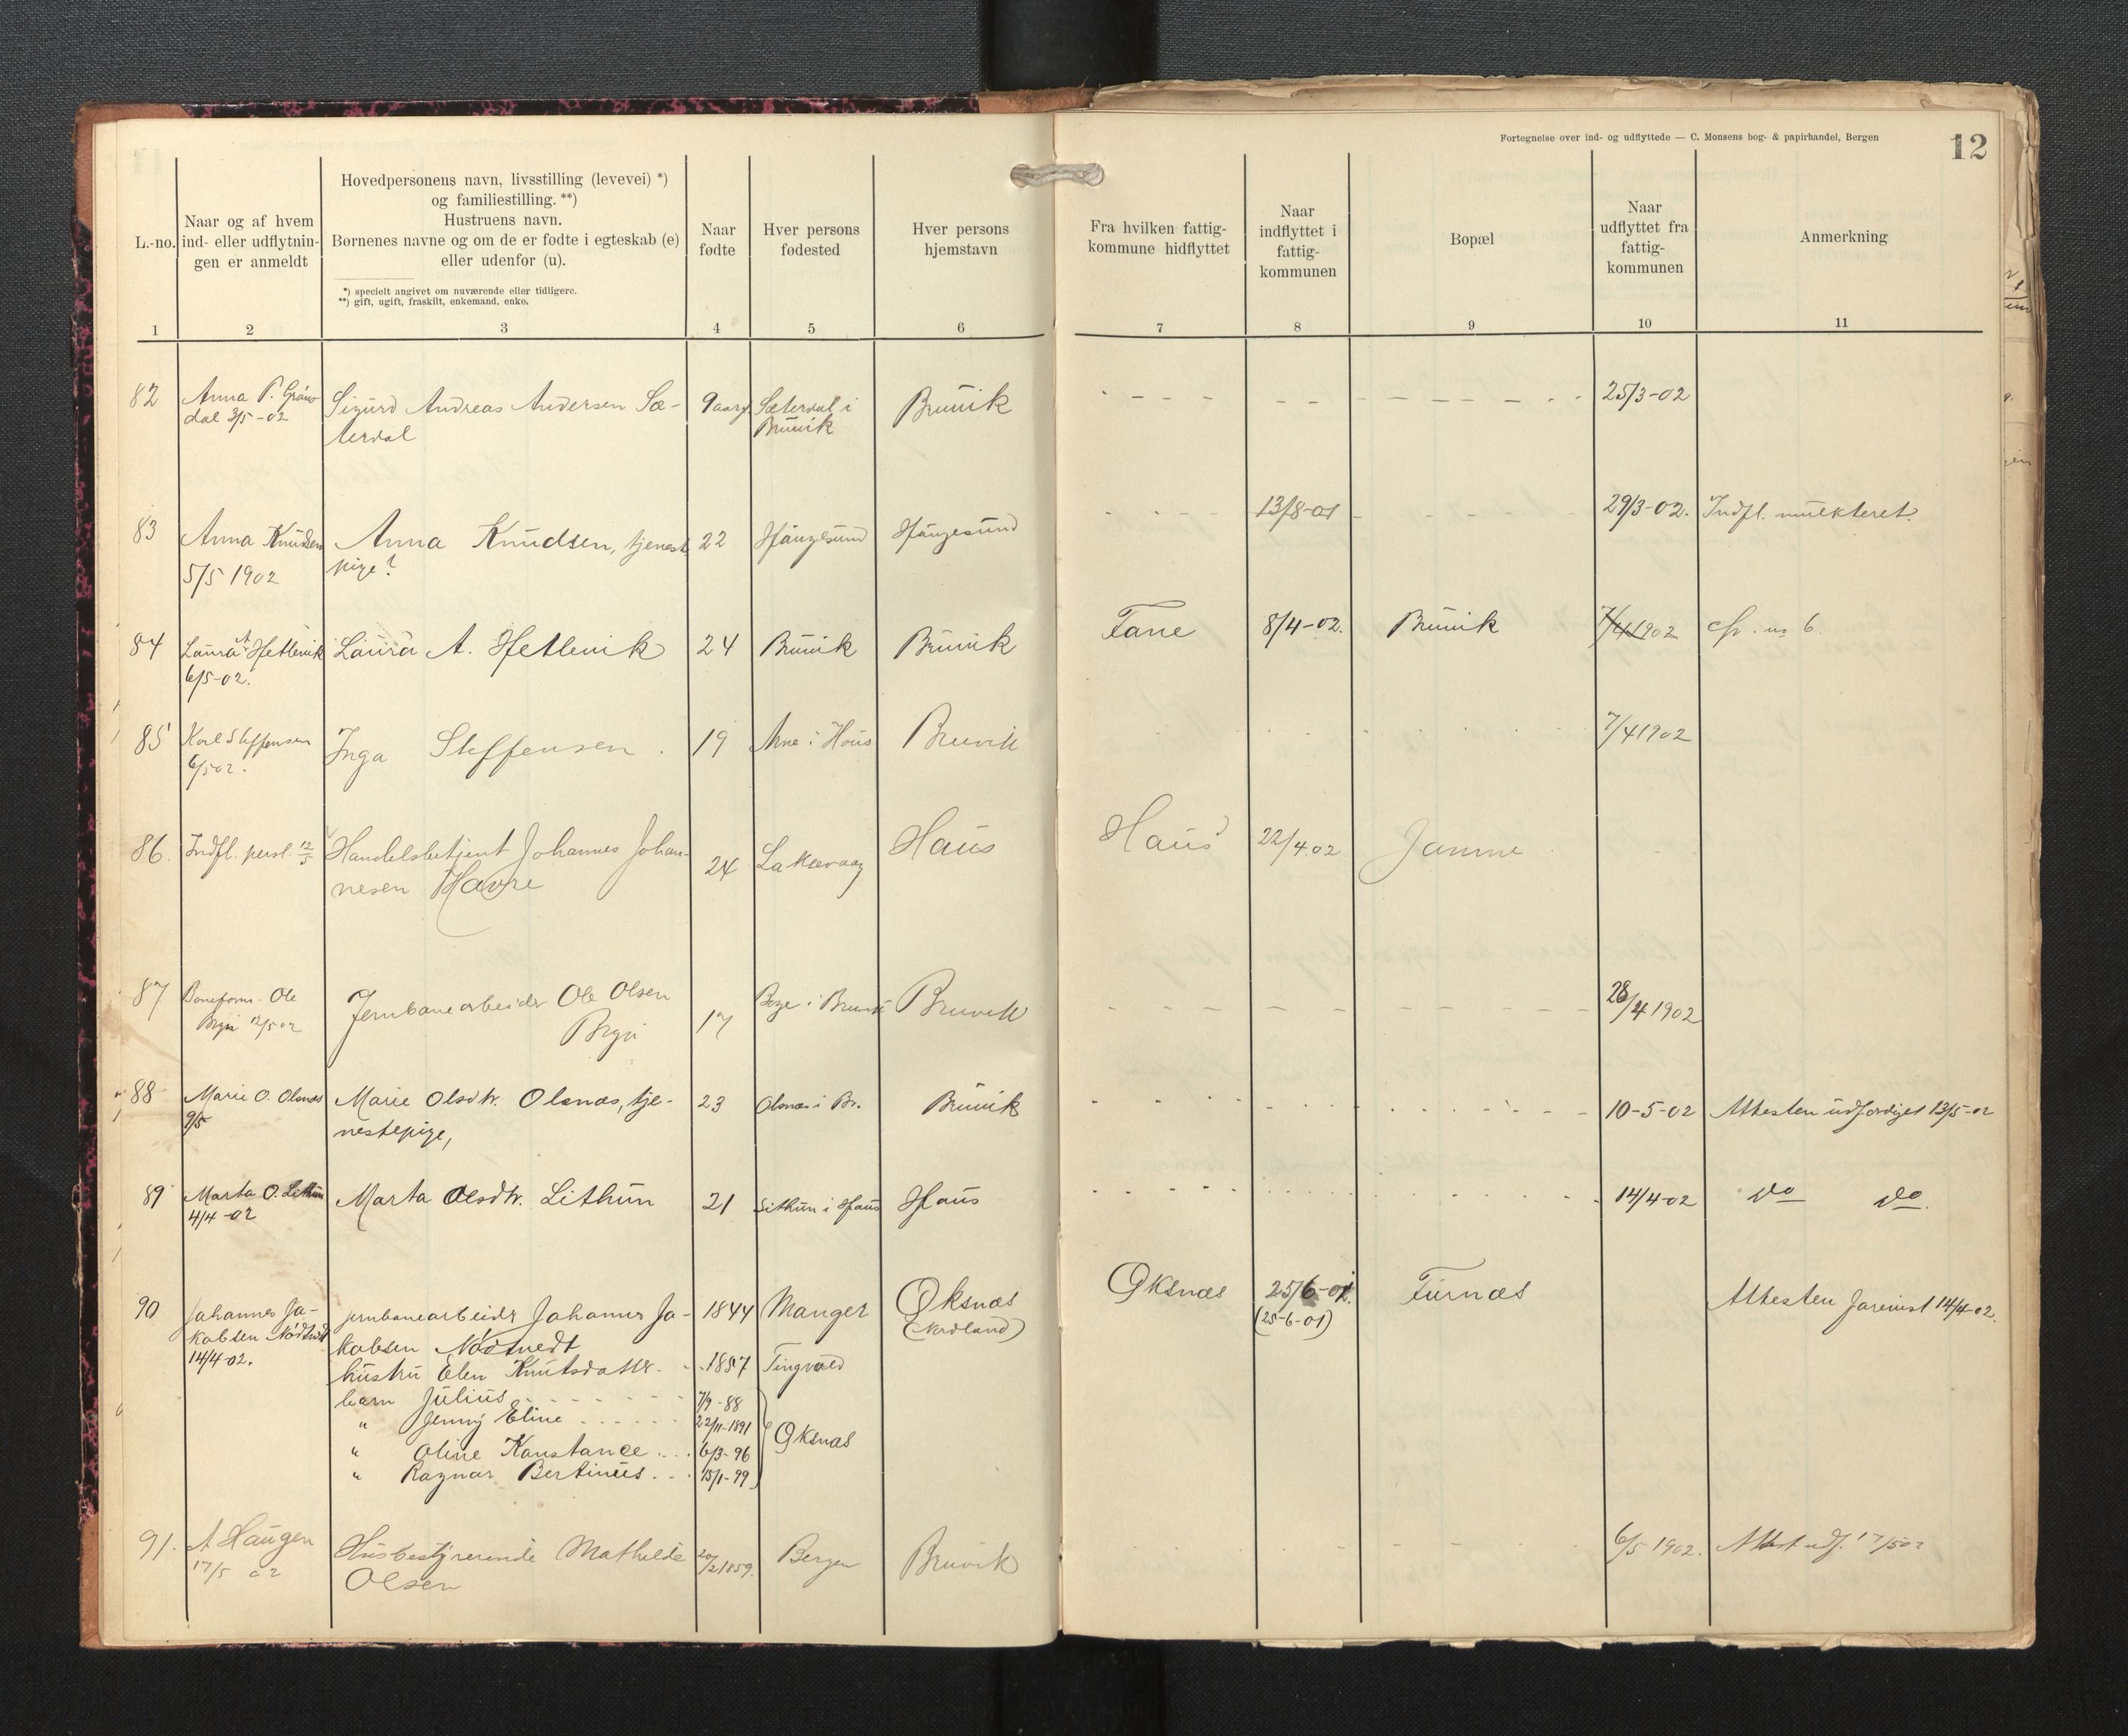 Fortegnelse over ind- og udflyttede — C. Monsens bog- & papirhandel, Bergen
12
L.-no.
Naar og af hvem
ind- eller udflytnin-
gen er anmeldt
Hovedpersonens navn, livsstilling (levevei) *)
og familiestilling. **)
Hustruens navn.
Børnenes navne og om de er fødte i egteskab (e)
eller udenfor (u).
*) specielt angivet om nuværende eller tidligere.
**) gift, ugift, fraskilt, enkemand, enke.
Naar
fødte
Hver persons
fødested
Hver persons
hjemstavn
Fra hvilken fattig-
kommune hidflyttet
Naar
indflyttet i
fattig-
kommunen
Bopæl
Naar
udflyttet fra
fattig-
kommunen
Anmerkning
1 2 3 4 5 6 7 8 9 10 11
82
Anna P. Gräns
dal 3/5-02
Sigurd Andreas Andersen Sæ-
terdal
9 aar
Sæterdal i
Bruvik
Bruvik
25/3-02
83
Anna Knudsen
5/5 1902
Anna Knudsen, tjeneste
pige?
22
Haugesund
Haugesund
13/8-01
29/3-02.
Indfl. mulkteret.
84
Laura A. Hetlevik
6/5-02.
Laura A. Hetlevik
24
Bruvik
Bruvik
Fane
8/4-02.
Bruvik
7/4 1902
cfr. no 6
85
Karl Steffensen
6/5 02.
Inga Steffensen
19
Arne i Haus
Bruvik
7/4 1902
86.
Indfl. persl. 12/5
Handelsbetjent Johannes Johan-
nesen Havre
24
Laksevaag
Haus
Haus
22/4 02
Jamne
87
Baneform. Ole
Brgn 12/5 02
Jernbanearbeider Ole Olsen
Brgn
17
Boge i Bruvik
Bruvik
28/4 1902
88
Marie O. Olsnæs
9/5
Marie Olsdtr. Olsnæs, tje-
nestepige,
23
Olsnæs i Br.
Bruvik
10-5-02
Attesten udfærdiget 13/5-02
89
Marta O. Lithun
4/4-02
Marta Olsdtr. Lithun
21
Lithun i Haus
Haus
14/4-02
do do.
90
Johannes Ja-
kobsen Nödtvedt
14/4-02.
jernbanearbeidr Johannes Ja-
kobsen Nödtvedt
1844
Manger
Øksnæs
(Nordland)
Øksnæs
25/6-01.
(25-6-01)
Furnæs
Attesten 14/4-02.
hustru Elen Knutsdatter
1857
Tingvold
barn Julius
7/9-88
" Jenny Eline
22/11-1891
Øksnæs
" Oline Konstance
6/3-96
" Ragnar Bertinius
15/1-99
91.
A Haugen
17/5 02
Husbestyrerinde Mathilde
Olsen
20/2 1859.
Bergen
Bruvik
6/5 1902.
Attest udf. 17/5 02